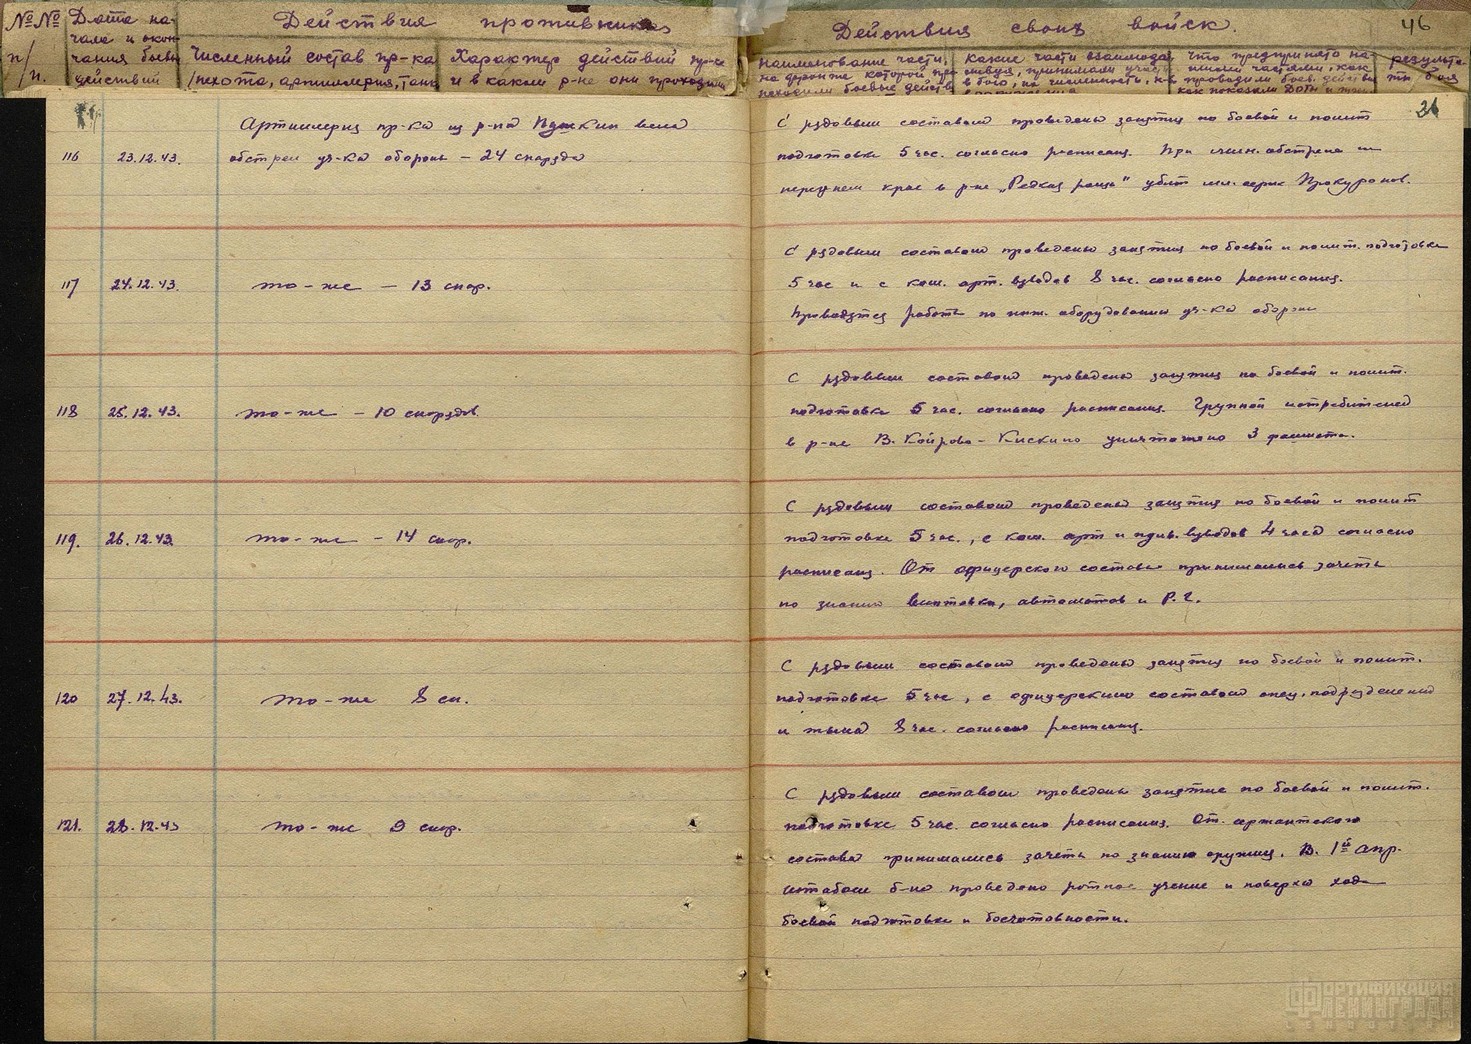 №№ п/п.
Дата начала и окончания боевых действий
Действия противника
Численный состав пр-ка /пехота, артиллерия, танки
Характер действий пр-ка и в каком р-не они проходили
Действия своих войск.
46
наименование части, на фронте которой происходили боевые действ
какие части взаимодей
в бою, их численность,
что предпринято нашими частями, как проводили боев. действи
результаты боя
26
116
23.12.43.
Артиллерия пр-ка из р-на Пушкин вела
обстрел уч-ка обороны – 24 снаряда
С рядовым составом проведены занятия по боевой и полит
подготовке 5 час. согласно расписания. При обстреле
переднем крае в р-не „Редкая роща" убит мл. серж Прокуронов.
117
24.12.43.
то-же – 13 снар.
С рядовым составом проведены занятия по боевой и полит. подготовке
5 час и с ком. арт. взводов 8 час. согласно расписания.
Проводятся работы по инж. оборудованию уч-ка обороны
118
25.12.43.
то-же – 10 снарядов.
С рядовым составом проведены занятия по боевой и полит.
подготовке 5 час. согласно расписания. Группой истребителей
в р-не В. Койрово – Кискино уничтожено 3 фашиста.
119.
26.12.43.
то-же – 14 снар.
С рядовым составом проведены занятия по боевой и полит
подготовке 5 час., с ком. арт и взводов 4 часа согласно
расписания. От офицерского состава принимались зачеты
по знанию винтовки, автоматов и Р.Г.
120
27.12.43.
то-же 8 сн.
С рядовым составом проведены занятия по боевой и полит.
подготовке 5 час, с офицерским составом спец. подразделений
и тыла 8 час. согласно расписания.
121.
28.12.43
то-же 9 снар.
С рядовым составом проведены занятие по боевой и полит.
подготовке 5 час. согласно расписания. От сержантского
состава принимались зачеты по знанию оружия. В 1й апр.
штабом б-на проведено ротное учение и поверка хода
боевой подготовки и боеготовности.
ФОРТИФИКАЦИЯ
ЛЕНИНГРАДА